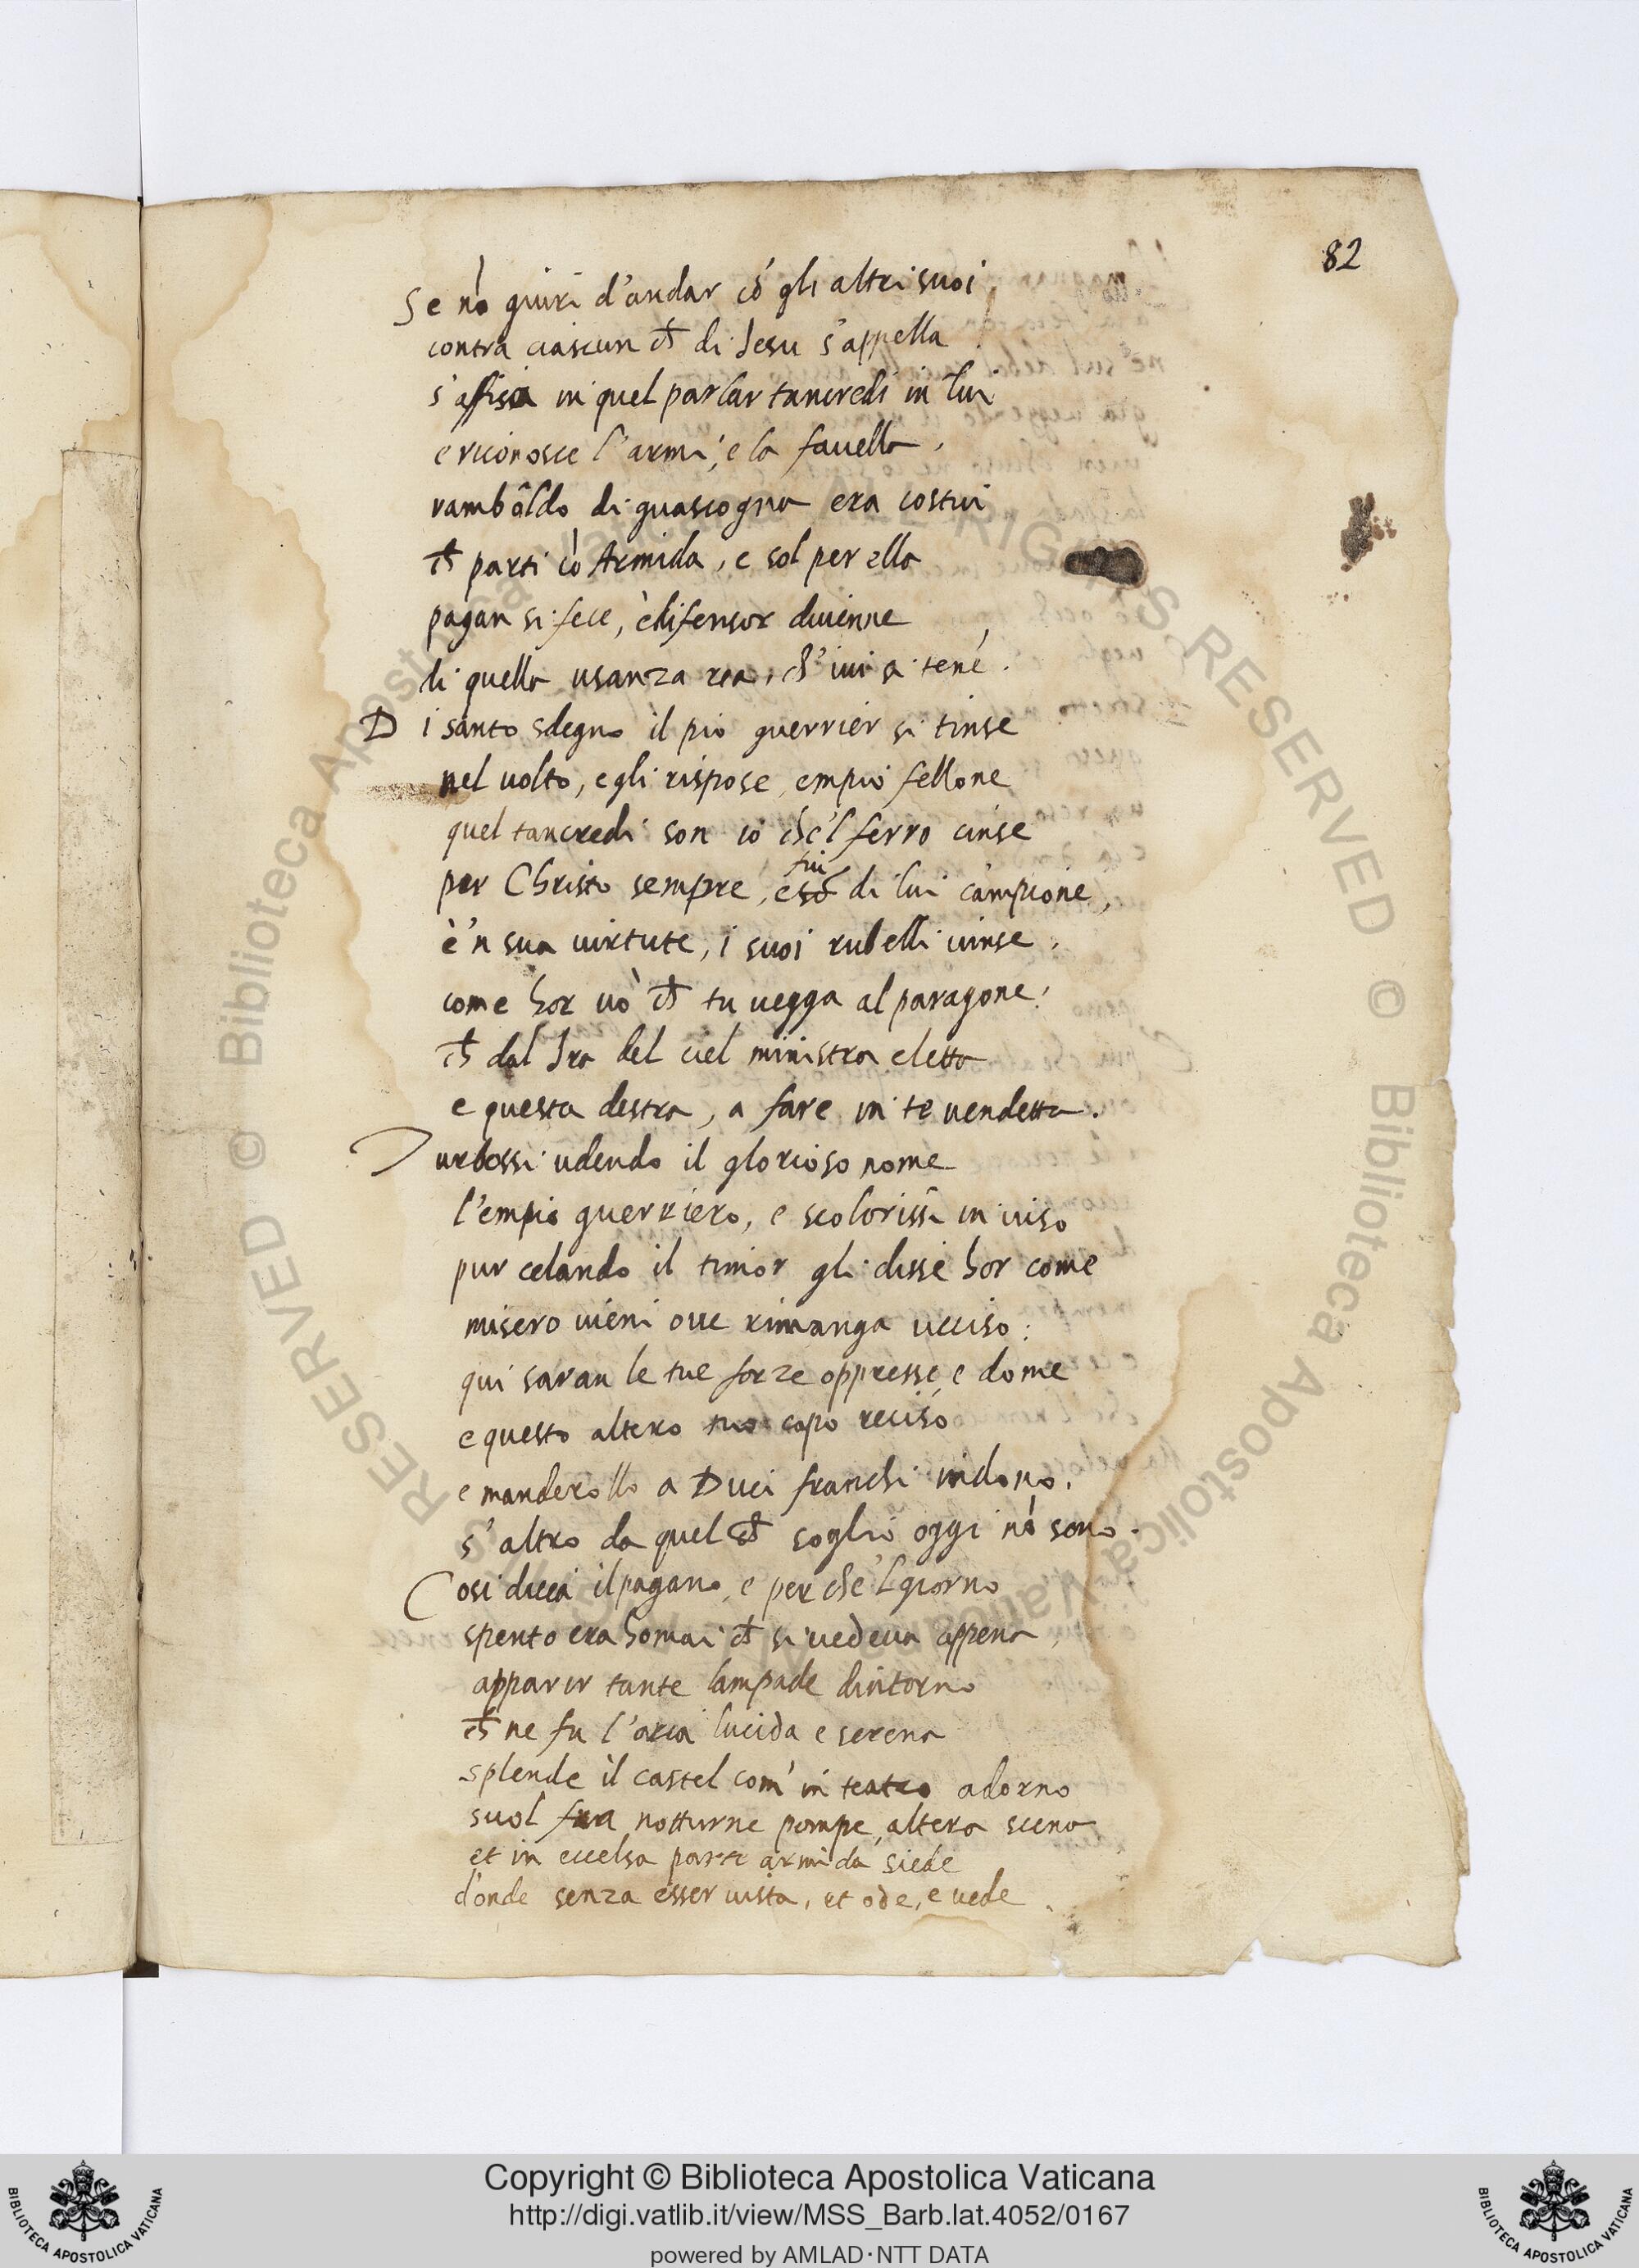 82
Se nò giuri d'andar cõ gli altri suoi,
contra ciascun ch̃ di Jesu s'appella
s'affisa in quel parlar tancredi in lui
e riconosce l'armi, e la fauella,
ramboldo di guascogna era costui
ch̃ parti cõ Armida, e sol per ella
pagan si fece, è difensor diuenne
di quella usanza rea, ch'iui si tenẽ.
Di santo sdegno il pio guerrier si tinse
nel uolto, e gli rispose, empio fellone
quel tancredi son io che'l ferro cinse
per Christo sempre, e fui di lui campione,
è'n sua uirtute, i suoi rubelli uinse,
come hor uò ch̃ tu uegga al paragone:
ch̃ dal Ira del ciel ministra eletta
e questa destra, a fare in te uendetta.
Turbossi udendo il glorioso nome
l'empio guerriero, e scolorissi in uiso
pur celando il timor gli disse hor come
misero uieni oue rimanga ucciso:
qui saran le tue forze oppresse, e dome
e questo altero tuo capo reciso
e manderollo a Duci franchi in dono.
s'altro da quel ch̃ soglio oggi nõ sono.
Cosi dicea il pagano, e perche'l giorno
spento era homai ch̃ si uedeua appena,
apparir tante lampade dintorno
ch̃ ne fu l'aria lucida e serena
splende il castel com' in teatro adorno
suol fra notturne pompe, altera scena
et in eccelsa parte armida siede
d'onde senza esser uista, et ode, e uede.
© Biblioteca Apostolica Vaticana ALL RIGHTS RESERVED © Biblioteca Apostolica Vaticana ALL RIGHTS RESERVED
Copyright © Biblioteca Apostolica Vaticana
http://digi.vatlib.it/view/MSS_Barb.lat.4052/0167
powered by AMLAD·NTT DATA
BIBLIOTECA APOSTOLICA VATICANA
BIBLIOTECA APOSTOLICA VATICANA